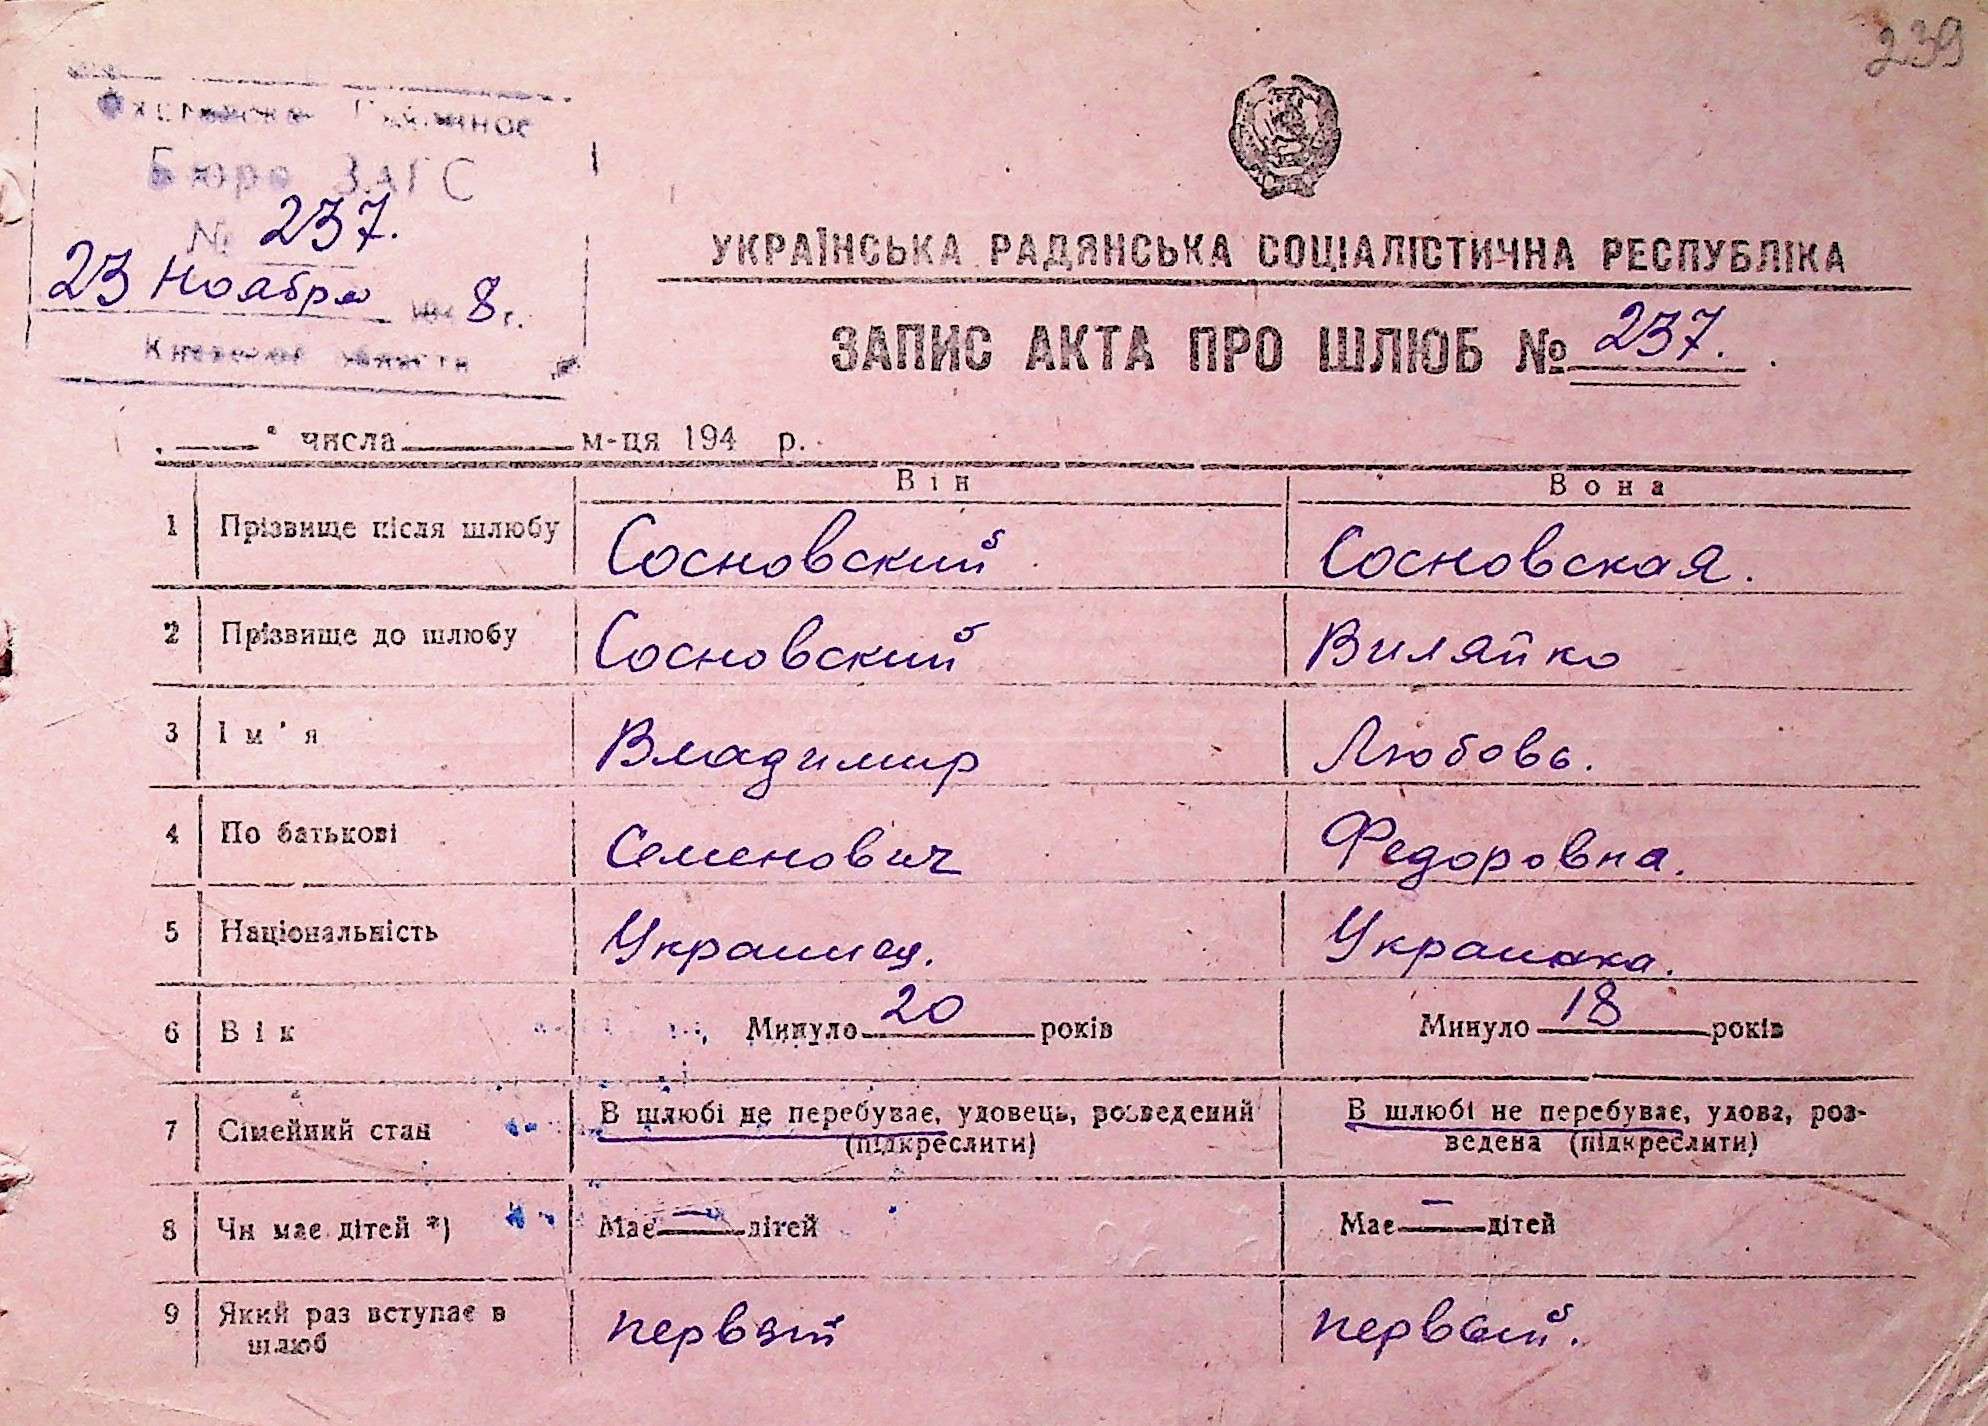 239
Бюро ЗАГС
№ 237.
23 Ноября 8 г.
Киевской области
УКРАЇНСЬКА РАДЯНСЬКА СОЦІАЛІСТИЧНА РЕСПУБЛІКА
ЗАПИС АКТА ПРО ШЛЮБ № 237.
числа м-ця 194 р.
Він Вона
1 Прізвище після шлюбу Сосновский Сосновская.
2 Прізвище до шлюбу Сосновский Виляйко
3 Ім'я Владимир Любовь.
4 По батькові Семенович Федоровна.
5 Національність Украинец. Украинка.
6 Вік Минуло 20 років Минуло 18 років
7 Сімейний стан В шлюбі не перебуває, удовець, розведений В шлюбі не перебуває, удова, роз-
(підкреслити) ведена (підкреслити)
8 Чи має дітей *) Має — дітей Має — дітей
9 Який раз вступає в первый первый.
шлюб